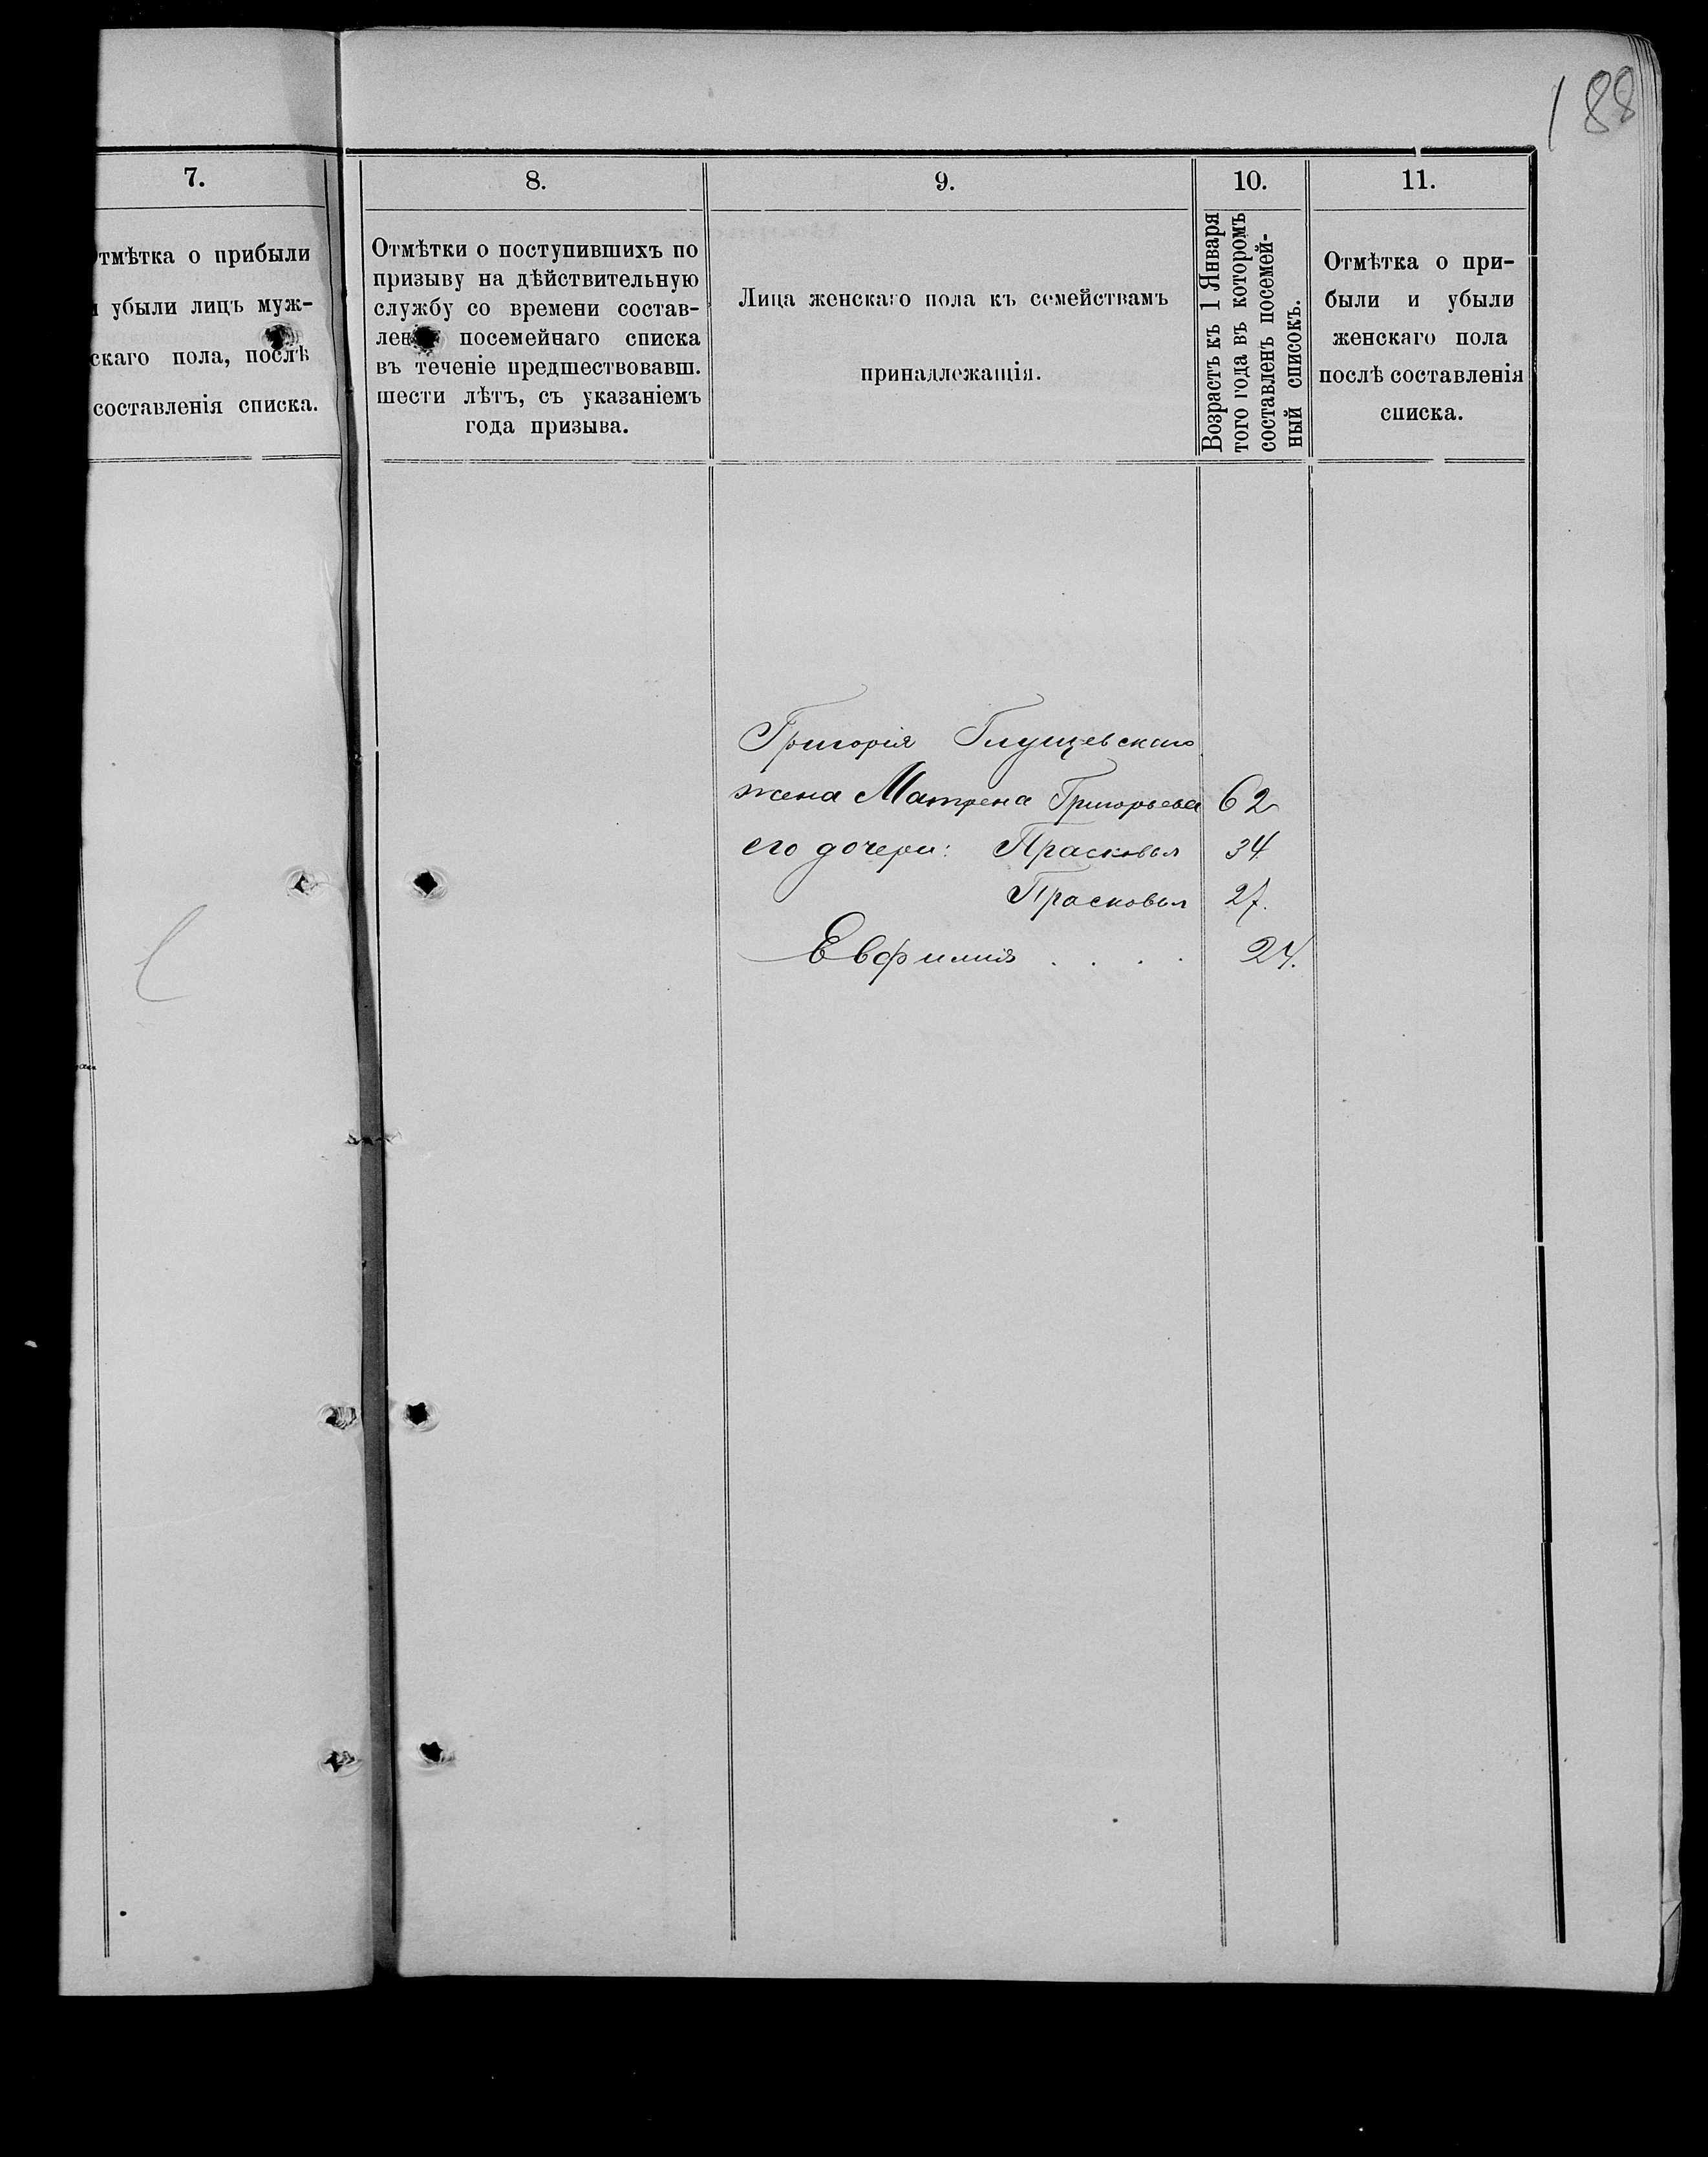 188
7.
Отмѣтка о прибыли
и убыли лицъ муж-
скаго пола, послѣ
составленія списка.
8.
Отмѣтки о поступившихъ по
призыву на дѣйствительную
службу со времени состав-
ленія посемейнаго списка
въ теченіе предшествовавш.
шести лѣтъ, съ указаніемъ
года призыва.
9.
Лица женскаго пола къ семействамъ
принадлежащія.
10.
Возрастъ къ 1 Января
того года въ которомъ
составленъ посемей-
ный списокъ.
11.
Отмѣтка о при-
были и убыли
женскаго пола
послѣ составленія
списка.
Григорія Глущевскаго
жена Матрена Григорьева 62
его дочери: Прасковья 34
Прасковья 27.
Евфимія . . . . 24.